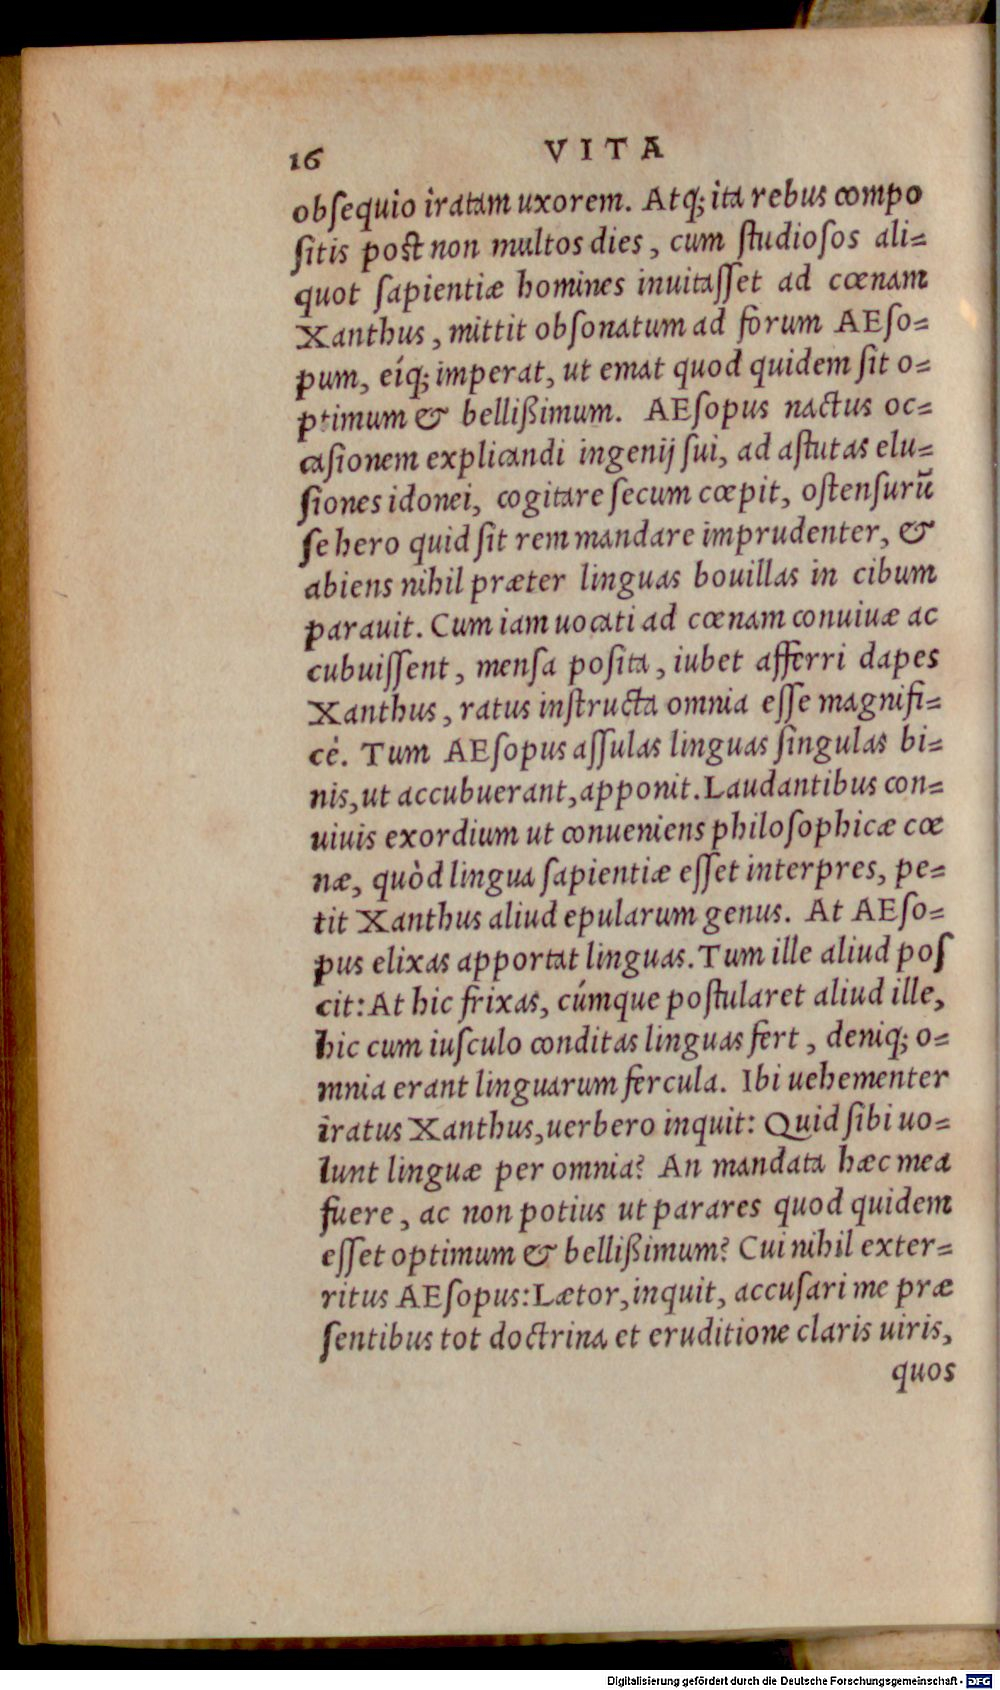 16 VITA
obſequio iratam uxorem. Atq; ita rebus compo
ſitis post non multos dies, cum ſtudioſos ali=
quot ſapientiæ homines inuitaſſet ad cœnam
Xanthus, mittit obſonatum ad forum AEſo=
pum, eíq; imperat, ut emat quod quidem ſit o=
ptimum & bellißimum. AEſopus nactus oc=
caſionem explicandi ingenij ſui, ad aſtutas elu=
ſiones idonei, cogitare ſecum cœpit, oſtenſurũ
ſe hero quid ſit rem mandare imprudenter, &
abiens nihil præter linguas bouillas in cibum
parauit. Cum iam uocati ad cœnam conuiuæ ac
cubuiſſent, menſa poſita, iubet afferri dapes
Xanthus, ratus inſtructa omnia eſſe magnifi=
cè. Tum AEſopus aſſulas linguas ſingulas bi=
nis, ut accubuerant, apponit. Laudantibus con=
uiuis exordium ut conueniens philoſophicæ cœ
næ, quòd lingua ſapientiæ eſſet interpres, pe=
tit Xanthus aliud epularum genus. At AEſo=
pus elixas apportat linguas. Tum ille aliud poſ
cit: At hic frixas, cúmque poſtularet aliud ille,
hic cum iuſculo conditas linguas fert, deniq; o=
mnia erant linguarum fercula. Ibi uehementer
iratus Xanthus, uerbero inquit: Quid ſibi uo=
lunt linguæ per omnia? An mandata hæc mea
fuere, ac non potius ut parares quod quidem
eſſet optimum & bellißimum? Cui nihil exter=
ritus AEſopus: Lætor, inquit, accuſari me præ
ſentibus tot doctrina et eruditione claris uiris,
quos
Digitalisierung gefördert durch die Deutsche Forschungsgemeinschaft - DFG